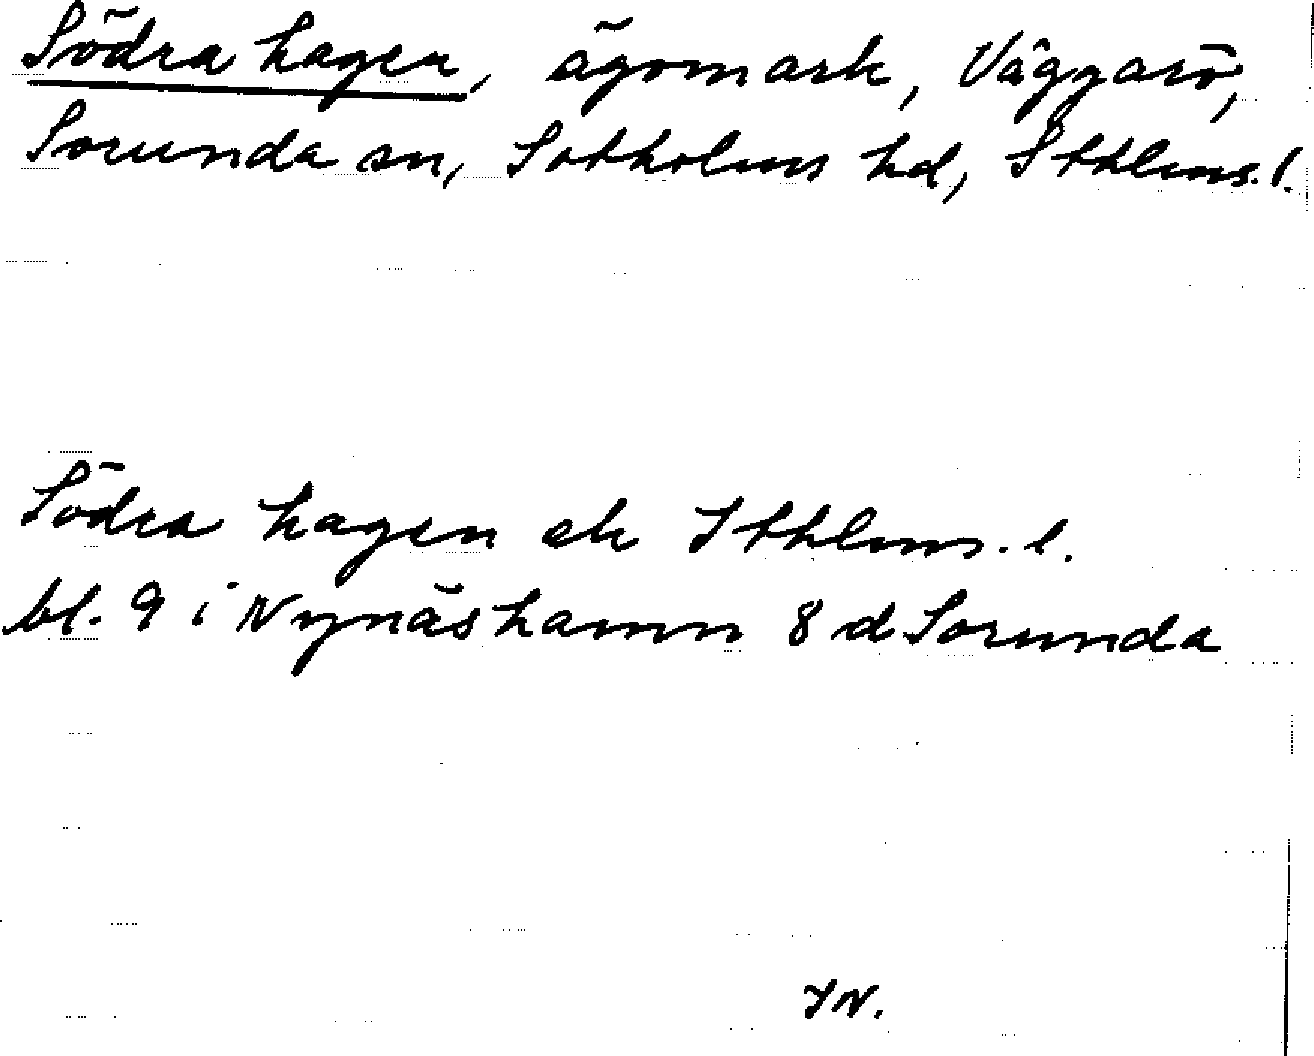 Södra hagen, ägomark, Väggarö,
Sorunda sn, Sotholms hd, Sthlms. l.
Södra hagen ek Sthlms. l.
bl. 9 i Nynäshamn 8 d Sorunda